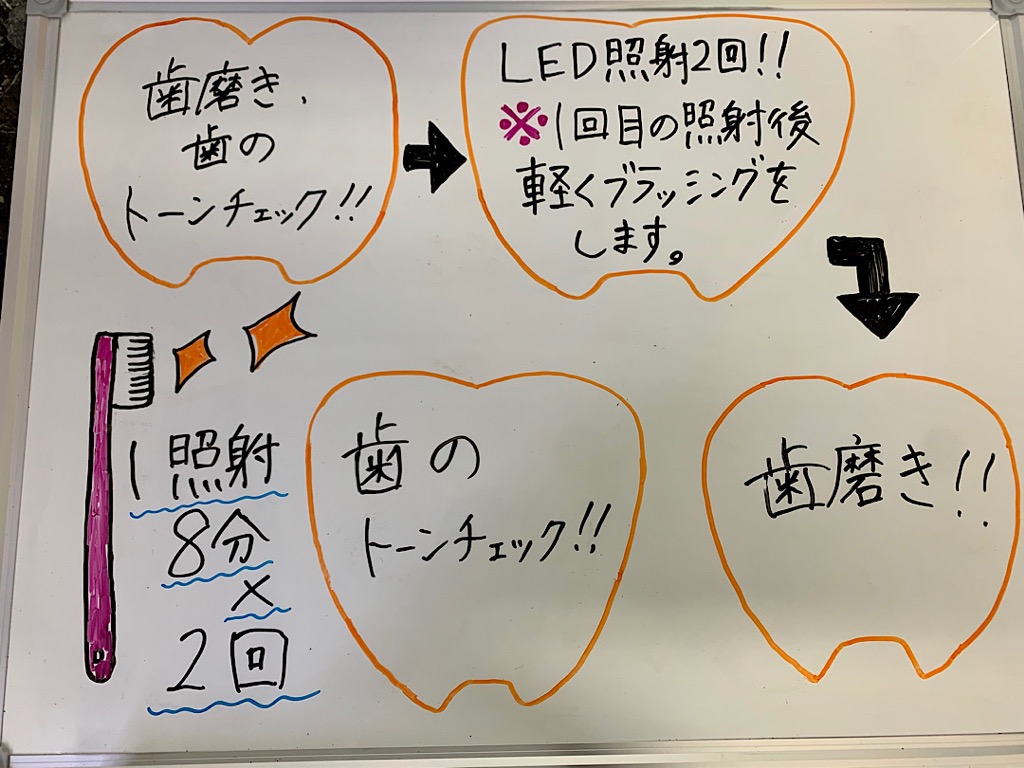 歯磨き、
歯の
トーンチェック!!
LED照射2回!!
※1回目の照射後
軽くブラッシングを
します。
歯磨き!!
歯の
トーンチェック!!
1照射
8分
×
2回